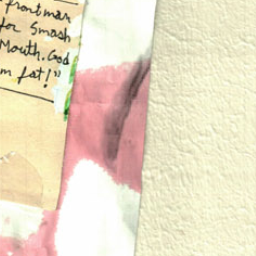 frontman
for Smash
Mouth. God
m fat!"